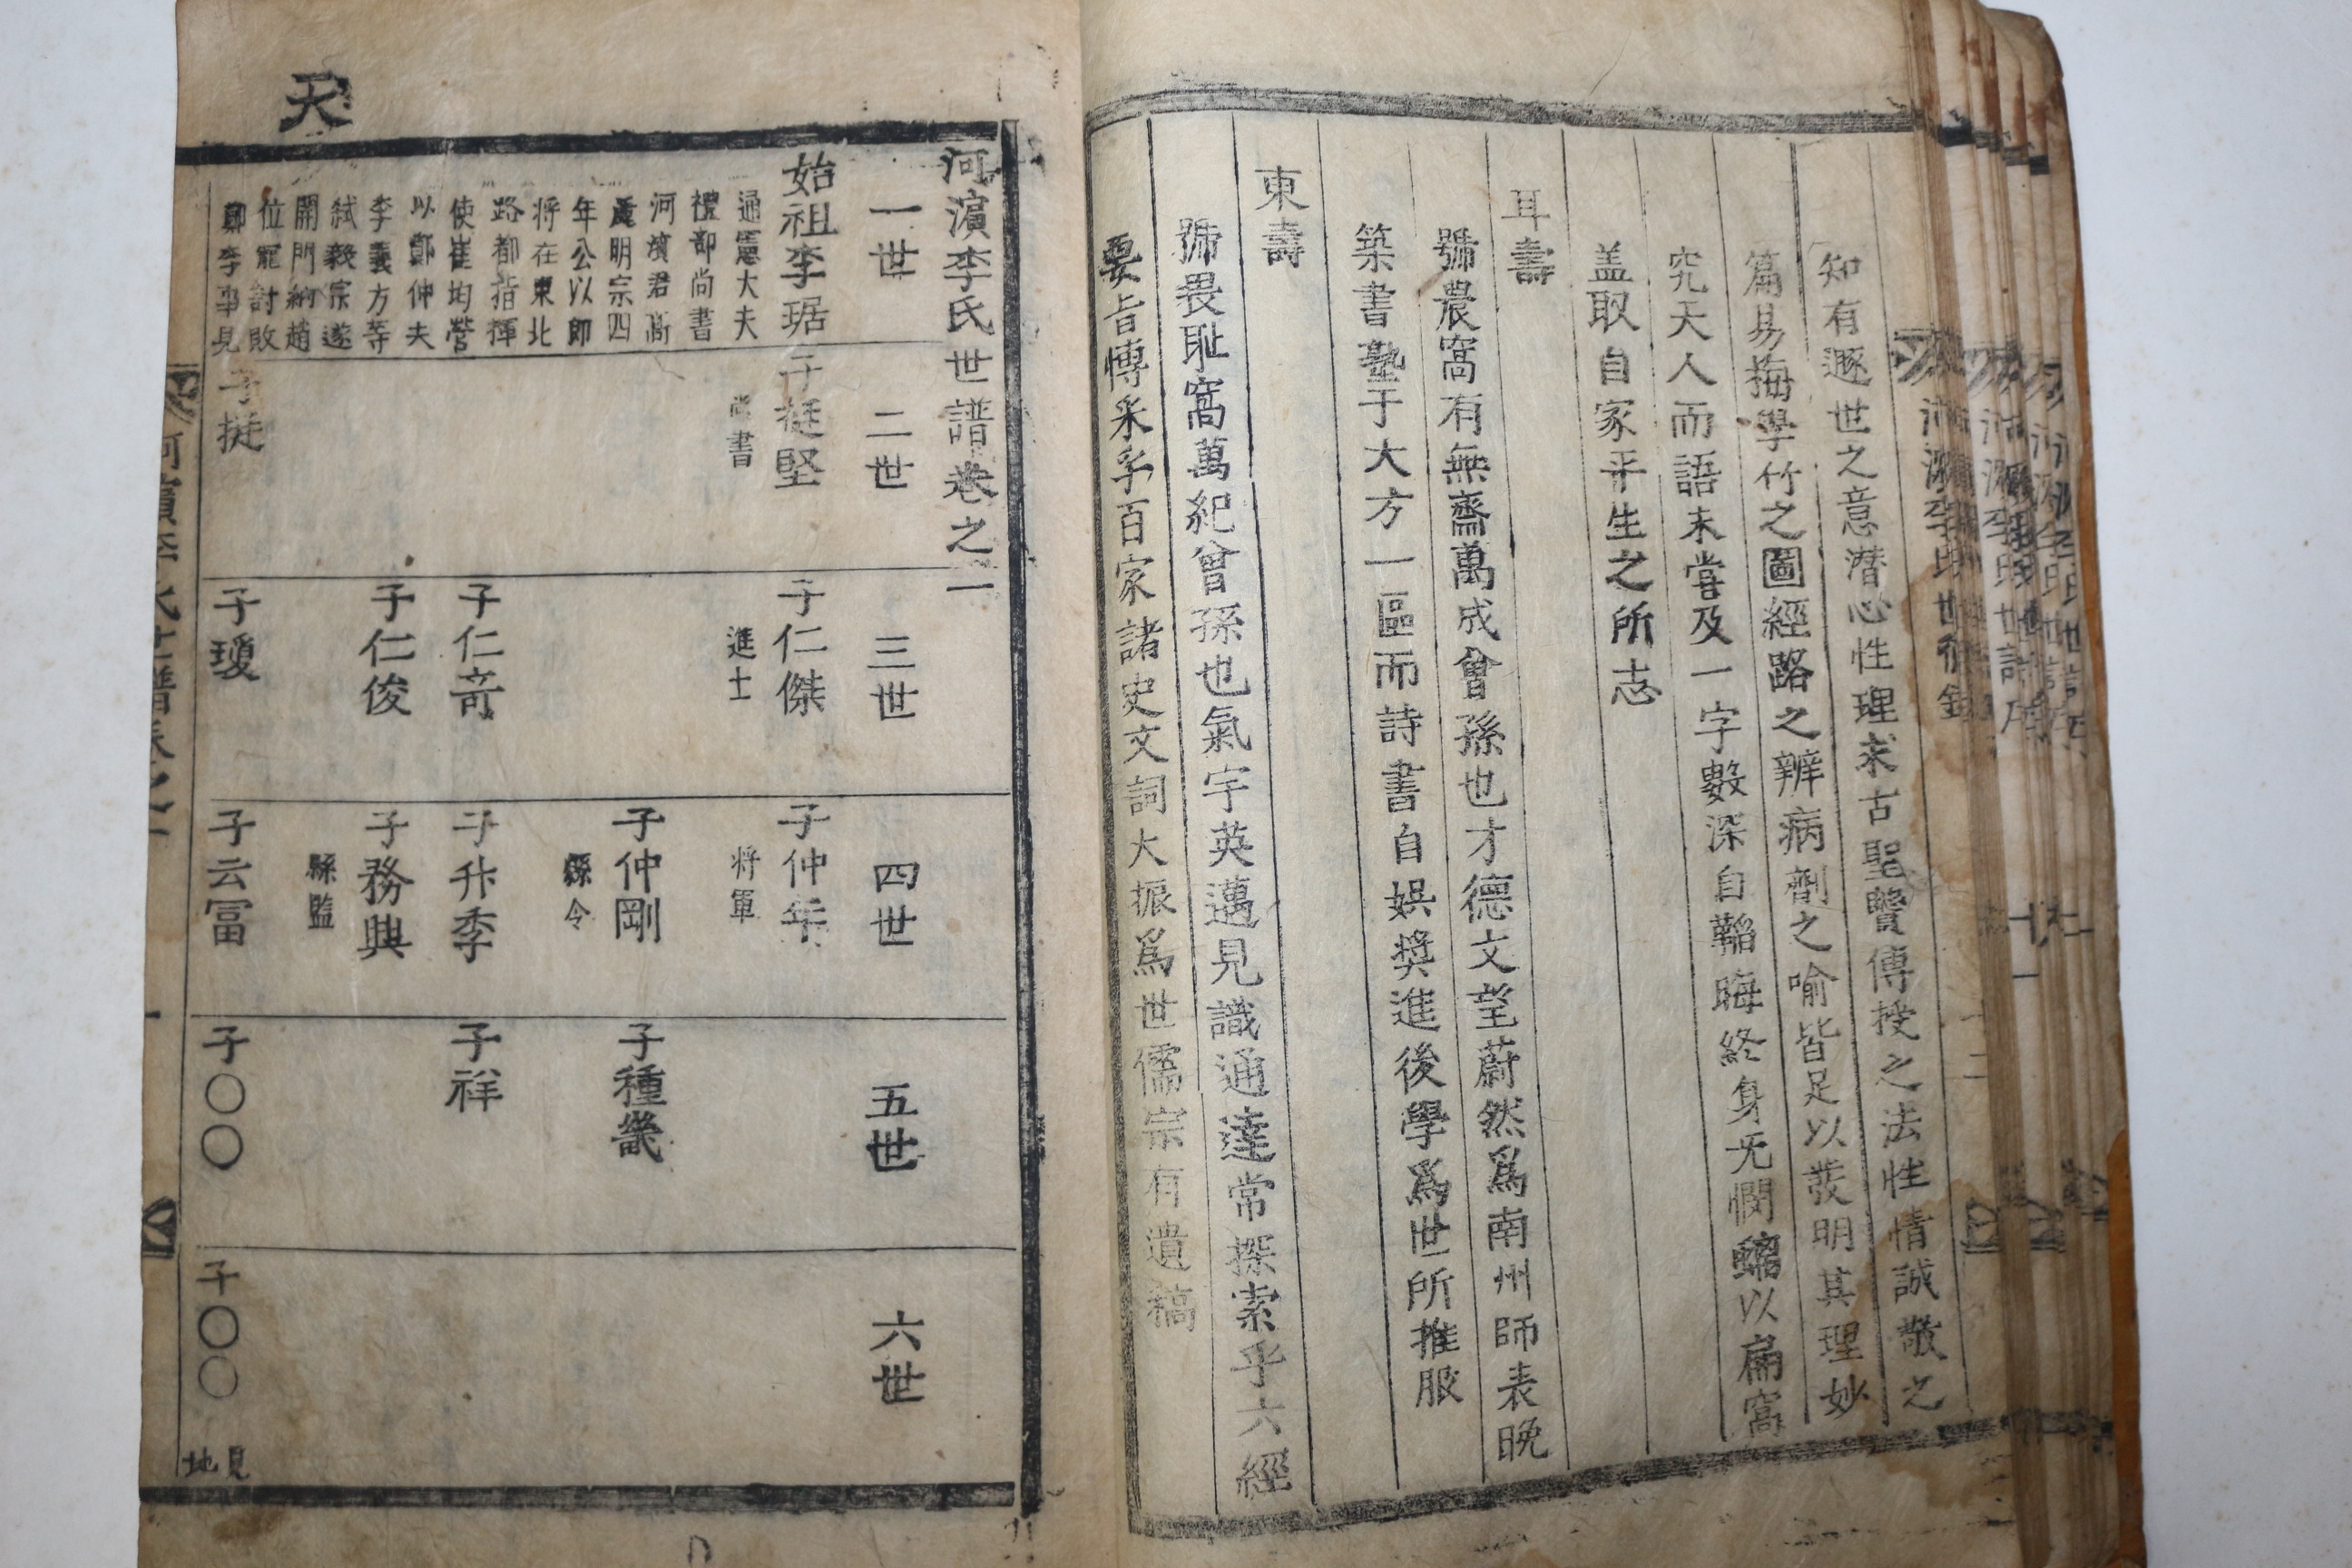 知有遯世之意潜心性理求古聖賢傳授之法性情誠敬之
篇易梅學竹之圖經路之辨病劑之喻皆足以發明其理妙
究天人而語未嘗及一字數深自韜晦終身无憫編以扁窩
盖取自家平生之所志
耳壽
號農窩有無齋萬成曾孫也才德文望蔚然爲南州師表晩
築書塾于大方一區而詩書自娛奬進後學爲世所推服
東壽
號畏恥窩萬紀曾孫也氣宇英邁見識通達常探索乎六經
要旨博采乎百家諸史文詞大振爲世儒宗有遺稿
天
河濵李氏世譜卷之一
一世
二世
三世
四世
五世
六世
始祖李琚
子挺堅
子仁傑
子仲年
通憲大夫
尚書
進士
将軍
禮部尚書
河濵君高
麗明宗四
子仲剛
子種畿
年公以郎
縣令
将在東北
路都指揮
使崔均營
子仁竒
子升季
子祥
以鄭仲夫
李義方等
子仁俊
子務興
弑毅宗遂
縣監
開門納趙
位寵討敗
鄭李事見
子挺
子瓊
子云冨
子〇〇
子〇〇
見地
河濵李氏世譜卷之一